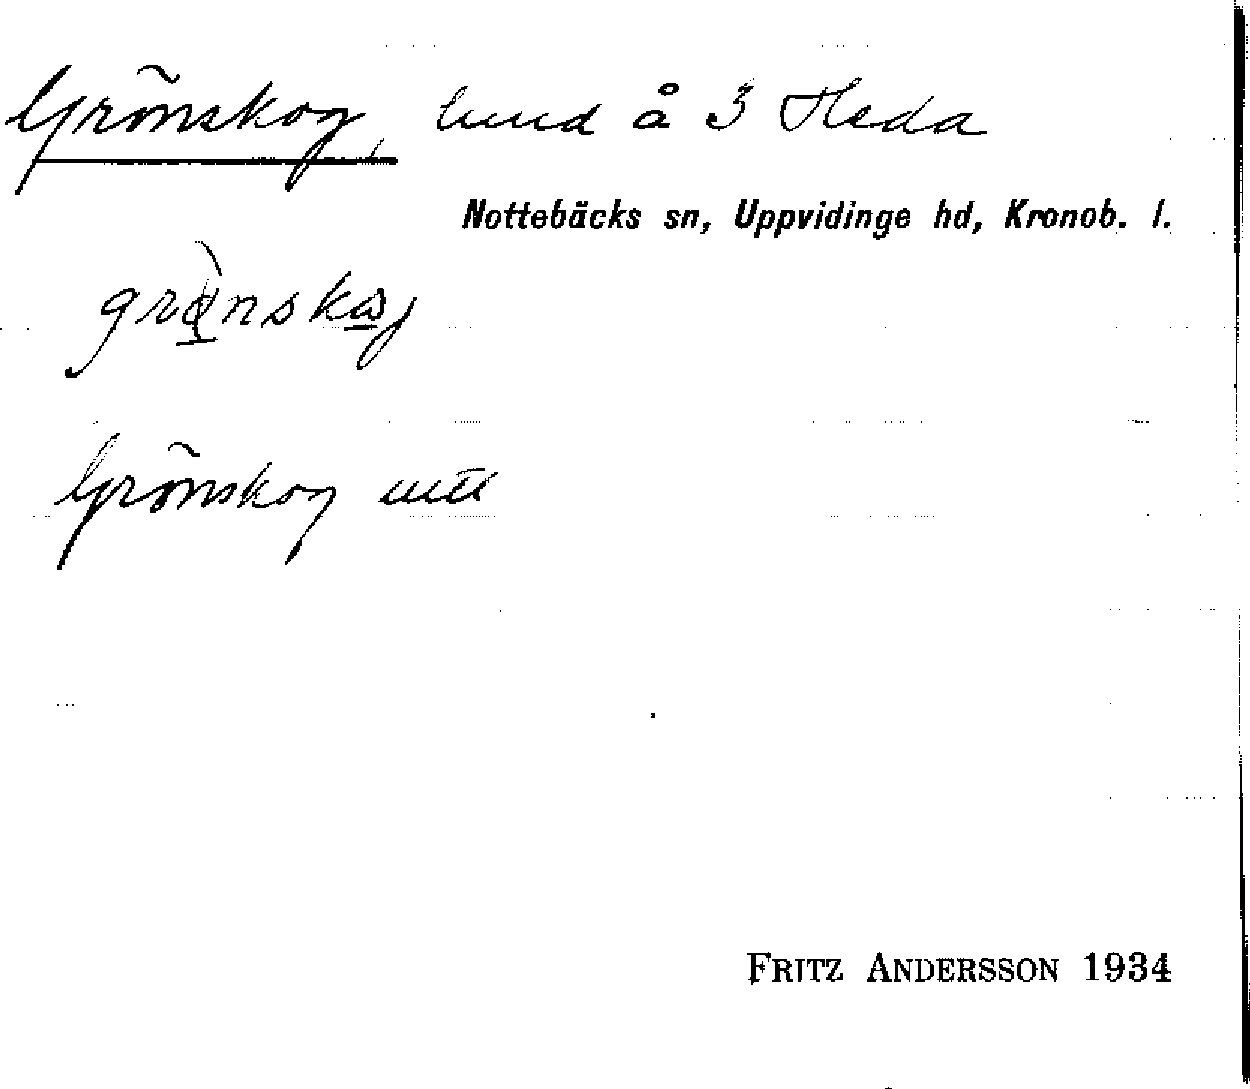 Grönskog, lund å 3 Heda
Nottebäcks sn, Uppvidinge hd, Kronob. l.
Grönskog
FRITZ ANDERSSON 1934